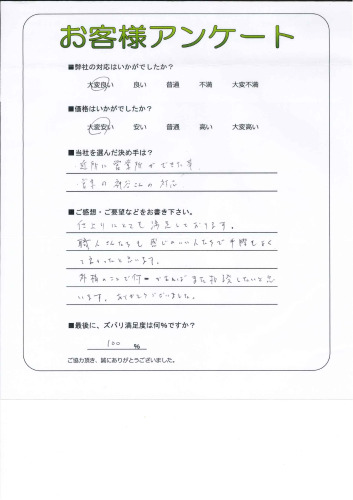 お客様アンケート
■弊社の対応はいかがでしたか?
大変良い 良い 普通 不満 大変不満
■価格はいかがでしたか?
大変安い 安い 普通 高い 大変高い
■当社を選んだ決め手は?
近所に営業所ができた事
営業の さんの対応
■ご感想・ご要望などをお書き下さい。
仕上りにとても満足しております。
職人さんたちも感じのいい人たちで手際もよく
て良かったと思います。
外構のことで何かあればまた相談したいと思
います。ありがとうございました。
■最後に、ズバリ満足度は何%ですか?
100 %
ご協力頂き、誠にありがとうございました。